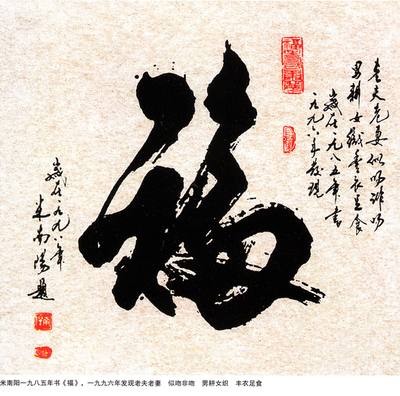 老夫老妻似吻非吻
男耕女織豐衣足食
歲在一九八五年書
一九九六年發現
福
歲在一九九八年
米南陽題
米南阳一九八五年书《福》，一九九六年发现老夫老妻 似吻非吻 男耕女织 丰衣足食